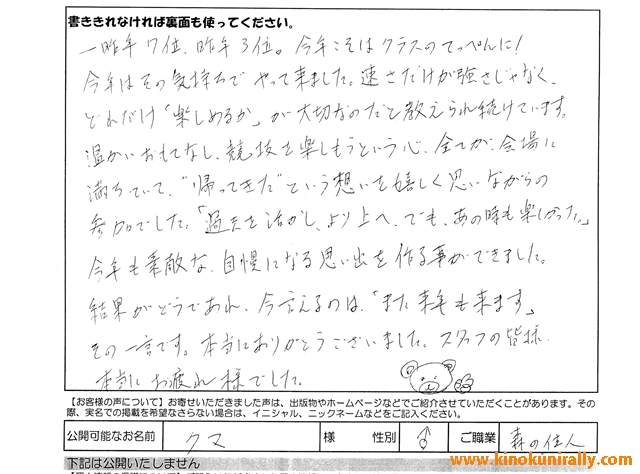 書ききれなければ裏面も使ってください。
一昨年7位、昨年3位。今年こそはクラスのてっぺんに！
今年はその気持ちで やって来ました。速さだけが強さじゃなく、
どれだけ「楽しめるか」が大切なのだと教えられ続けています。
温かいおもてなし、競技を楽しもうという心、全てが、会場に
満ちていて、"帰ってきた"という想いを嬉しく思いながらの
参加でした。「過去を活かし、より上へ、でも、あの時も楽しかった。」
今年も素敵な、自慢になる思い出を作る事ができました。
結果がどうであれ、今言えるのは、「また来年も来ます」
その一言です。本当にありがとうございました。スタッフの皆様、
本当にお疲れ様でした。
【お客様の声について】お寄せいただきました声は、出版物やホームページなどでご紹介させていただくことがあります。その
際、実名での掲載を希望なさらない場合は、イニシャル、ニックネームなどをご記入ください。
公開可能なお名前 クマ 様 性別 ♂ ご職業 森の住人
下記は公開いたしません
www.kinokunirally.com